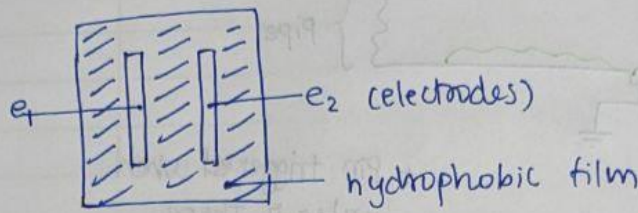 pipe
e1
e2 (electrodes)
hydrophobic film